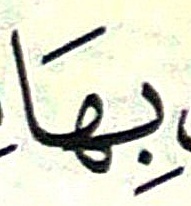 بِهَا